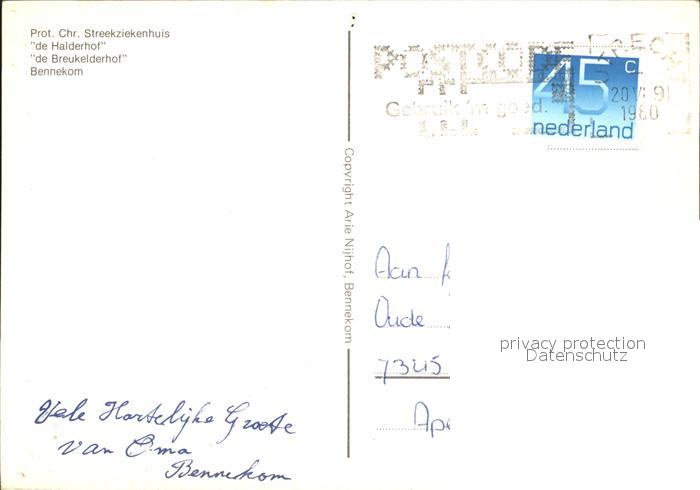 Prot. Chr. Streekziekenhuis
"de Halderhof"
"de Breukelderhof"
Bennekom
POSTCODE
Gebruik 'm goed.
45 c
nederland
20 VI
1980
Copyright Arie Nijhof, Bennekom
Aan
Oude
7345
Ape
privacy protection
Datenschutz
Vele Hartelijke Groete
van Oma
Bennekom